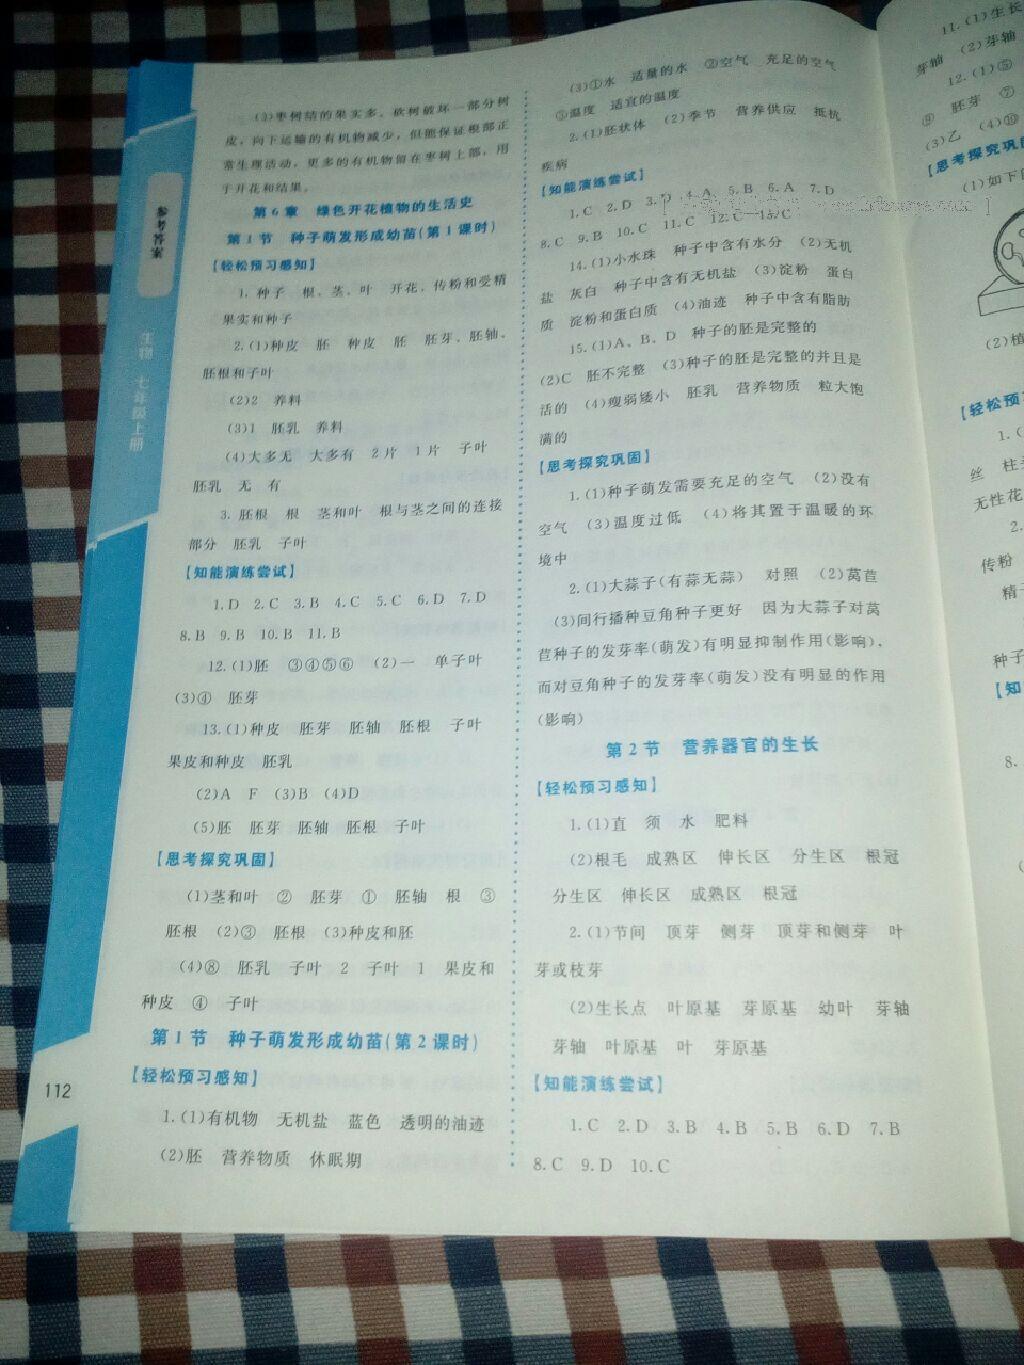 (3)枣树结的果实多。砍树破坏一部分树
皮，向下运输的有机物减少，但能保证根部正
常生理活动。更多的有机物留在枣树上部，用
于开花和结果。
第6章 绿色开花植物的生活史
第1节 种子萌发形成幼苗(第1课时)
【轻松预习感知】
1. 种子 根、茎、叶 开花、传粉和受精
果实和种子
2.(1)种皮 胚 种皮 胚 胚芽、胚轴、
胚根和子叶
(2)2 养料
(3)1 胚乳 养料
(4)大多无 大多有 2片 1片 子叶
胚乳 无 有
3. 胚根 根 茎和叶 根与茎之间的连接
部分 胚乳 子叶
【知能演练尝试】
1.D 2.C 3.B 4.C 5.C 6.D 7.D
8.B 9.B 10.B 11.B
12.(1)胚 ③④⑤⑥ (2)一 单子叶
(3)④ 胚芽
13.(1)种皮 胚芽 胚轴 胚根 子叶
果皮和种皮 胚乳
(2)A F (3)B (4)D
(5)胚 胚芽 胚轴 胚根 子叶
【思考探究巩固】
(1)茎和叶 ② 胚芽 ① 胚轴 根 ③
胚根 (2)③ 胚根 (3)种皮和胚
(4)⑧ 胚乳 子叶 2 子叶 1 果皮和
种皮 ④ 子叶
第1节 种子萌发形成幼苗(第2课时)
【轻松预习感知】
1.(1)有机物 无机盐 蓝色 透明的油迹
(2)胚 营养物质 休眠期
(3)①水 适量的水 ②空气 充足的空气
③温度 适宜的温度
2.(1)胚状体 (2)季节 营养供应 抵抗
疾病
【知能演练尝试】
1.C 2.D 3.D 4.A 5.B 6.A 7.D
8.C 9.B 10.C 11.C 12.C 13.C
14.(1)小水珠 种子中含有水分 (2)无机
盐 灰白 种子中含有无机盐 (3)淀粉 蛋白
质 淀粉和蛋白质 (4)油迹 种子中含有脂肪
15.(1)A、B、D 种子的胚是完整的
(2)C 胚不完整 (3)种子的胚是完整的并且是
活的 (4)瘦弱矮小 胚乳 营养物质 粒大饱
满的
【思考探究巩固】
1.(1)种子萌发需要充足的空气 (2)没有
空气 (3)温度过低 (4)将其置于温暖的环
境中
2.(1)大蒜子(有蒜无蒜) 对照 (2)莴苣
(3)间行播种豆角种子更好 因为大蒜子对莴
苣种子的发芽率(萌发)有明显抑制作用(影响)，
而对豆角种子的发芽率(萌发)没有明显的作用
(影响)
第2节 营养器官的生长
【轻松预习感知】
1.(1)直 须 水 肥料
(2)根毛 成熟区 伸长区 分生区 根冠
分生区 伸长区 成熟区 根冠
2.(1)节间 顶芽 侧芽 顶芽和侧芽 叶
芽或枝芽
(2)生长点 叶原基 芽原基 幼叶 芽轴
芽轴 叶原基 叶 芽原基
【知能演练尝试】
1.C 2.D 3.B 4.B 5.B 6.D 7.B
8.C 9.D 10.C
参考答案
生物 七年级上册
112
11.(1)生长
芽轴 (2)芽轴
12.(1)⑤
胚芽 ⑦
(3)乙 (4)⑩
【思考探究巩
(1)如下
(2)植
【轻松预
1.(
丝 柱
无性花
2.
传粉
精子
种子
【知
8.